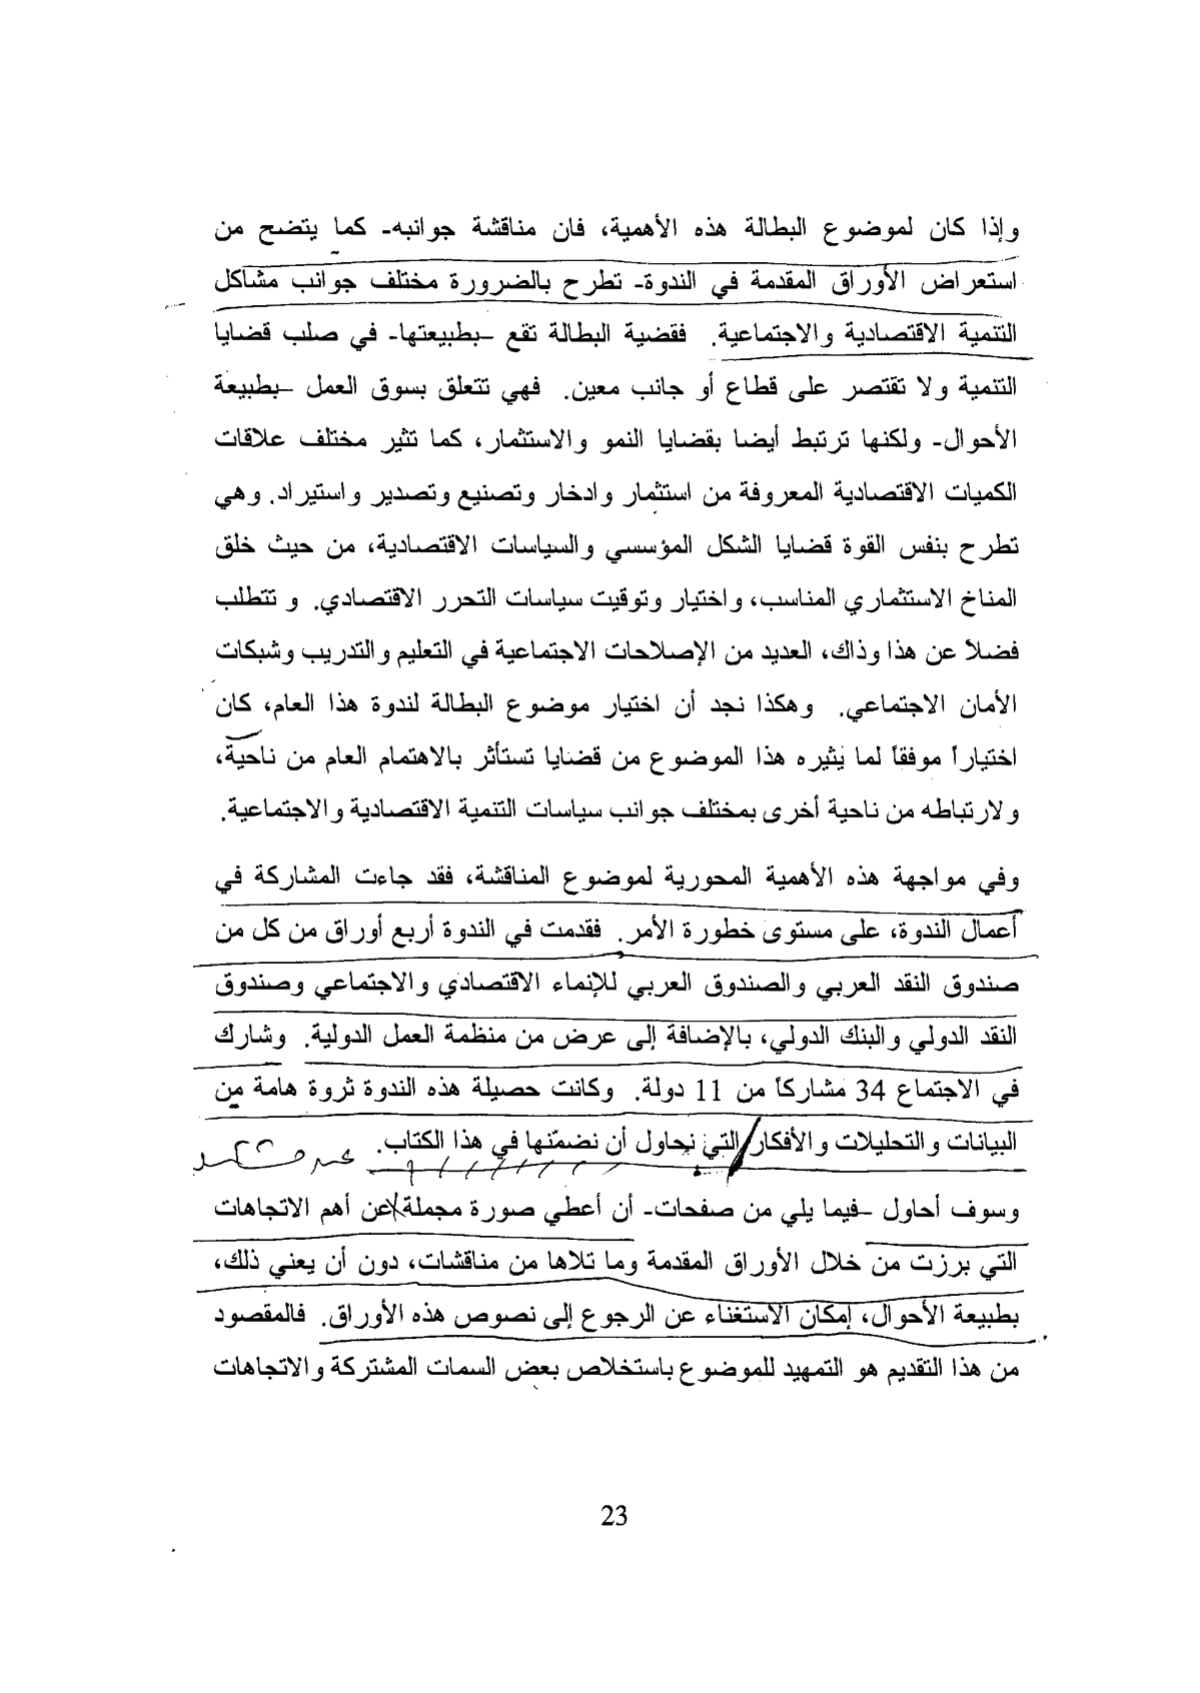 وإذا كان لموضوع البطالة هذه الأهمية، فان مناقشة جوانبه- كما يتضح من
استعراض الأوراق المقدمة في الندوة- تطرح بالضرورة مختلف جوانب مشاكل
التنمية الاقتصادية والاجتماعية. فقضية البطالة تقع –بطبيعتها- في صلب قضايا
التنمية ولا تقتصر على قطاع أو جانب معين. فهي تتعلق بسوق العمل –بطبيعة
الأحوال- ولكنها ترتبط أيضا بقضايا النمو والاستثمار، كما تثير مختلف علاقات
الكميات الاقتصادية المعروفة من استثمار وادخار وتصنيع وتصدير واستيراد. وهي
تطرح بنفس القوة قضايا الشكل المؤسسي والسياسات الاقتصادية، من حيث خلق
المناخ الاستثماري المناسب، واختيار وتوقيت سياسات التحرر الاقتصادي. و تتطلب
فضلاً عن هذا وذاك، العديد من الإصلاحات الاجتماعية في التعليم والتدريب وشبكات
الأمان الاجتماعي. وهكذا نجد أن اختيار موضوع البطالة لندوة هذا العام، كان
اختياراً موفقاً لما يثيره هذا الموضوع من قضايا تستأثر بالاهتمام العام من ناحية،
ولارتباطه من ناحية أخرى بمختلف جوانب سياسات التنمية الاقتصادية والاجتماعية.
وفي مواجهة هذه الأهمية المحورية لموضوع المناقشة، فقد جاءت المشاركة في
أعمال الندوة، على مستوى خطورة الأمر. فقدمت في الندوة أربع أوراق من كل من
صندوق النقد العربي والصندوق العربي للإنماء الاقتصادي والاجتماعي وصندوق
النقد الدولي والبنك الدولي، بالإضافة إلى عرض من منظمة العمل الدولية. وشارك
في الاجتماع 34 مشاركاً من 11 دولة. وكانت حصيلة هذه الندوة ثروة هامة من
البيانات والتحليلات والأفكار التي نحاول أن نضمّنها في هذا الكتاب.
وسوف أحاول –فيما يلي من صفحات- أن أعطي صورة مجملة عن أهم الاتجاهات
التي برزت من خلال الأوراق المقدمة وما تلاها من مناقشات، دون أن يعني ذلك،
بطبيعة الأحوال، إمكان الاستغناء عن الرجوع إلى نصوص هذه الأوراق. فالمقصود
من هذا التقديم هو التمهيد للموضوع باستخلاص بعض السمات المشتركة والاتجاهات
23